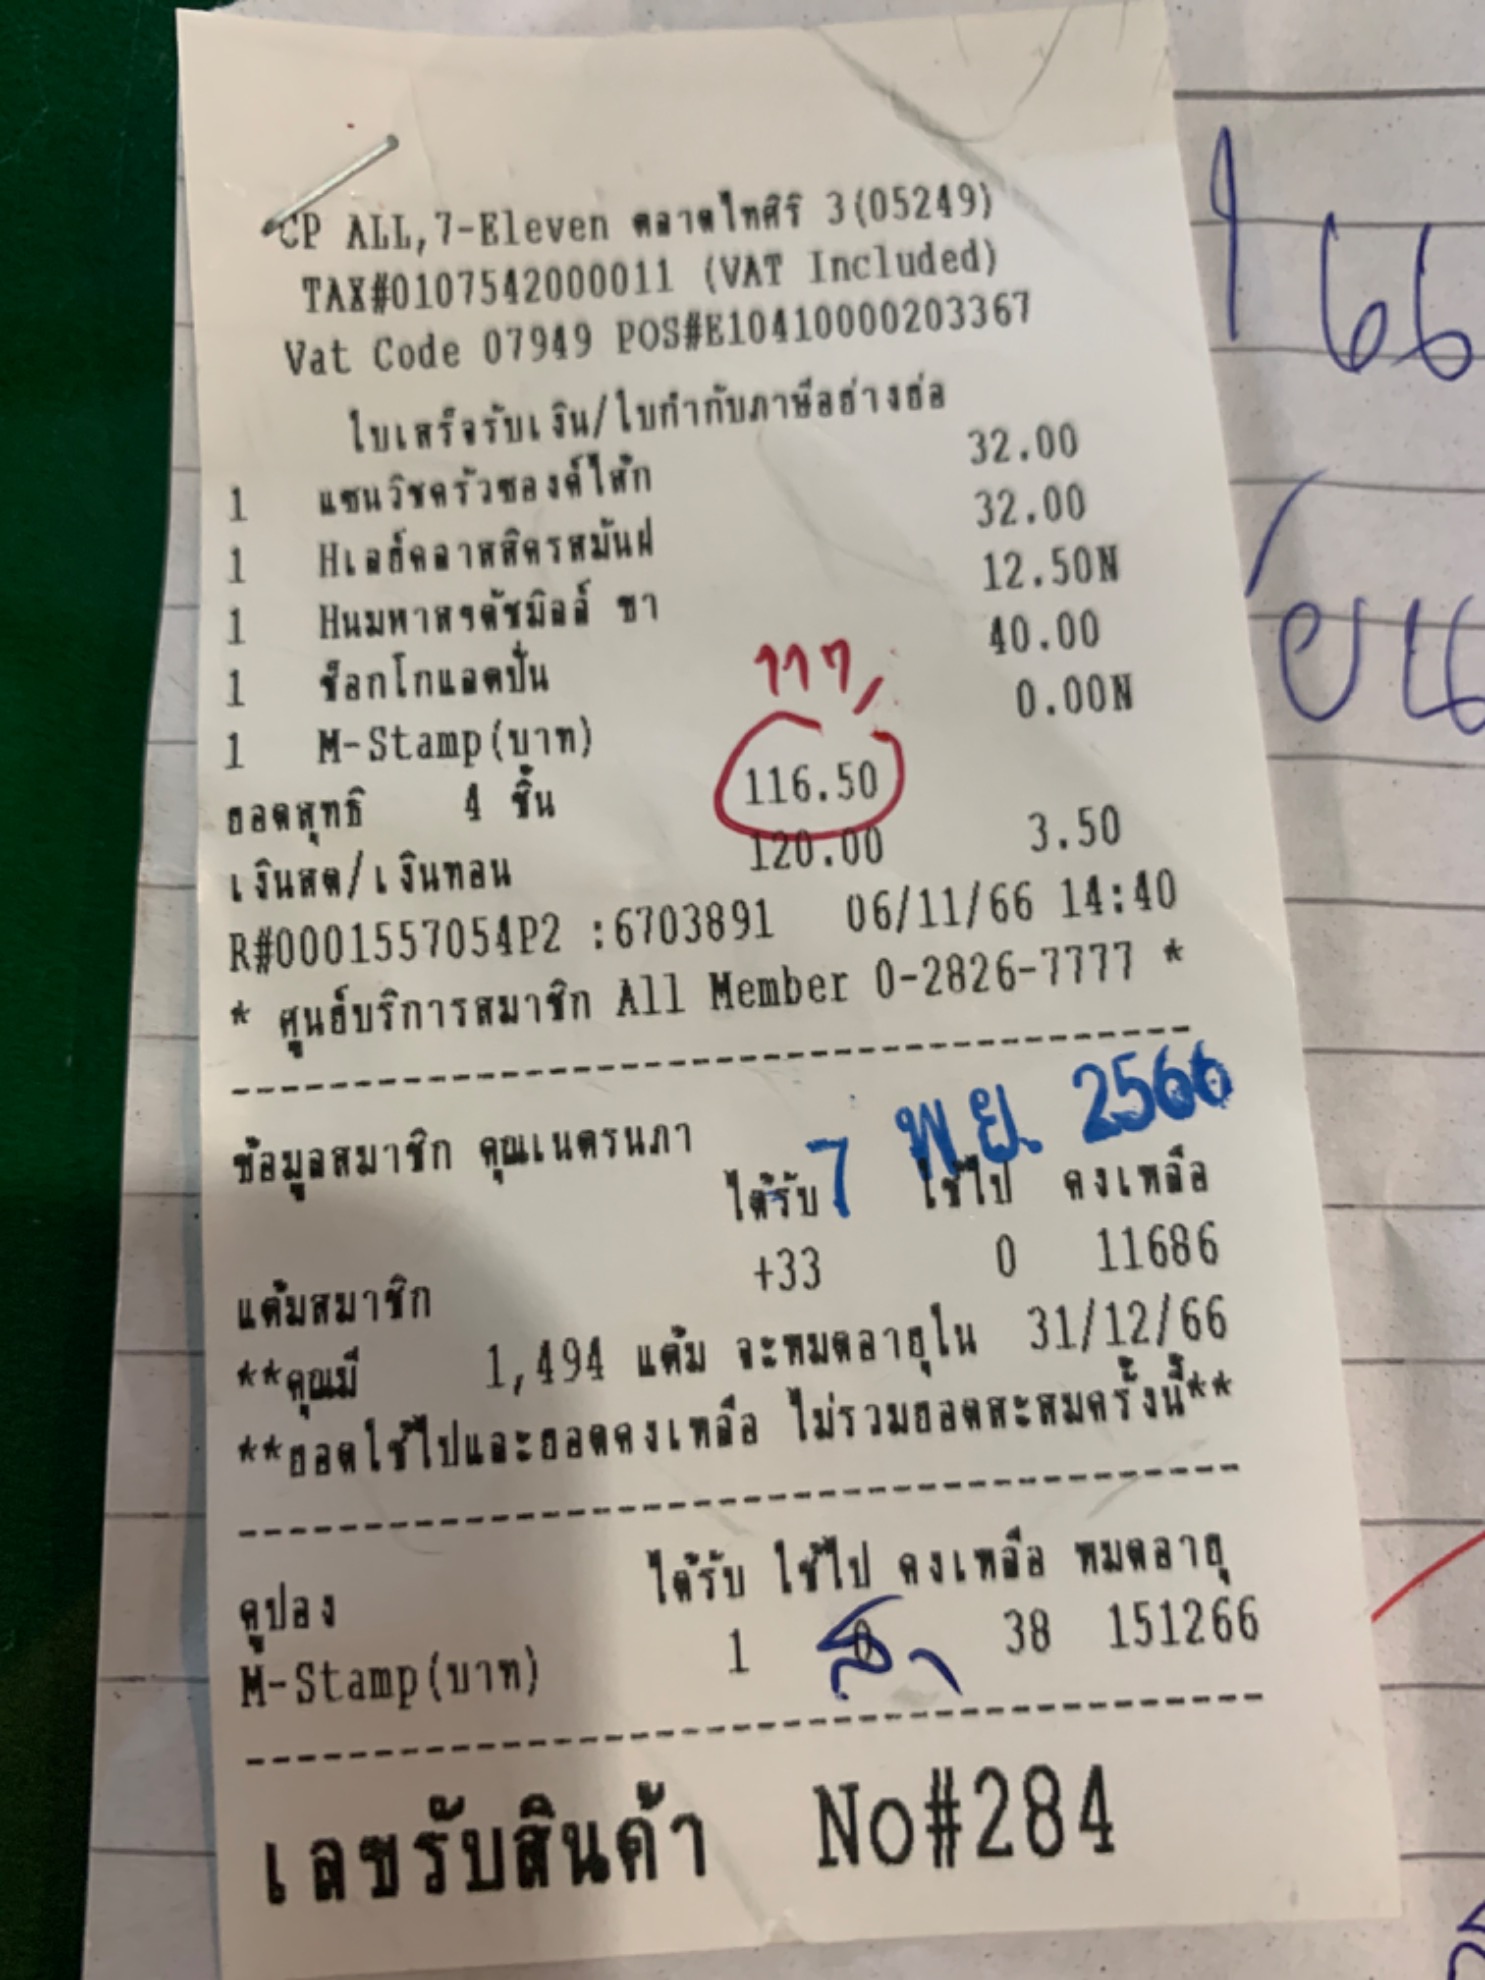 CP ALL,7-Eleven ตลาดไทศิริ 3(05249)
TAX#0107542000011 (VAT Included)
Vat Code 07949 POS#E10410000203367
ใบเสร็จรับเงิน/ใบกำกับภาษีอย่างย่อ
1 แซนวิชครัวซองค์ไส้ก 32.00
1 Hเลย์คลาสสิครสมันฝ 32.00
1 Hนมพาสฯดัชมิลล์ ชา 12.50N
1 ช็อกโกแลตปั่น 40.00
1 M-Stamp(บาท) 0.00N
117
ยอดสุทธิ 4 ชิ้น 116.50
เงินสด/เงินทอน 120.00 3.50
R#0001557054P2 :6703891 06/11/66 14:40
* ศูนย์บริการสมาชิก All Member 0-2826-7777 *
7 พ.ย. 2566
ข้อมูลสมาชิก คุณเนตรนภา
ได้รับ ใช้ไป คงเหลือ
แต้มสมาชิก +33 0 11686
**คุณมี 1,494 แต้ม จะหมดอายุใน 31/12/66
**ยอดใช้ไปและยอดคงเหลือ ไม่รวมยอดสะสมครั้งนี้**
คูปอง ได้รับ ใช้ไป คงเหลือ หมดอายุ
M-Stamp(บาท) 1 0 38 151266
เลขรับสินค้า No#284